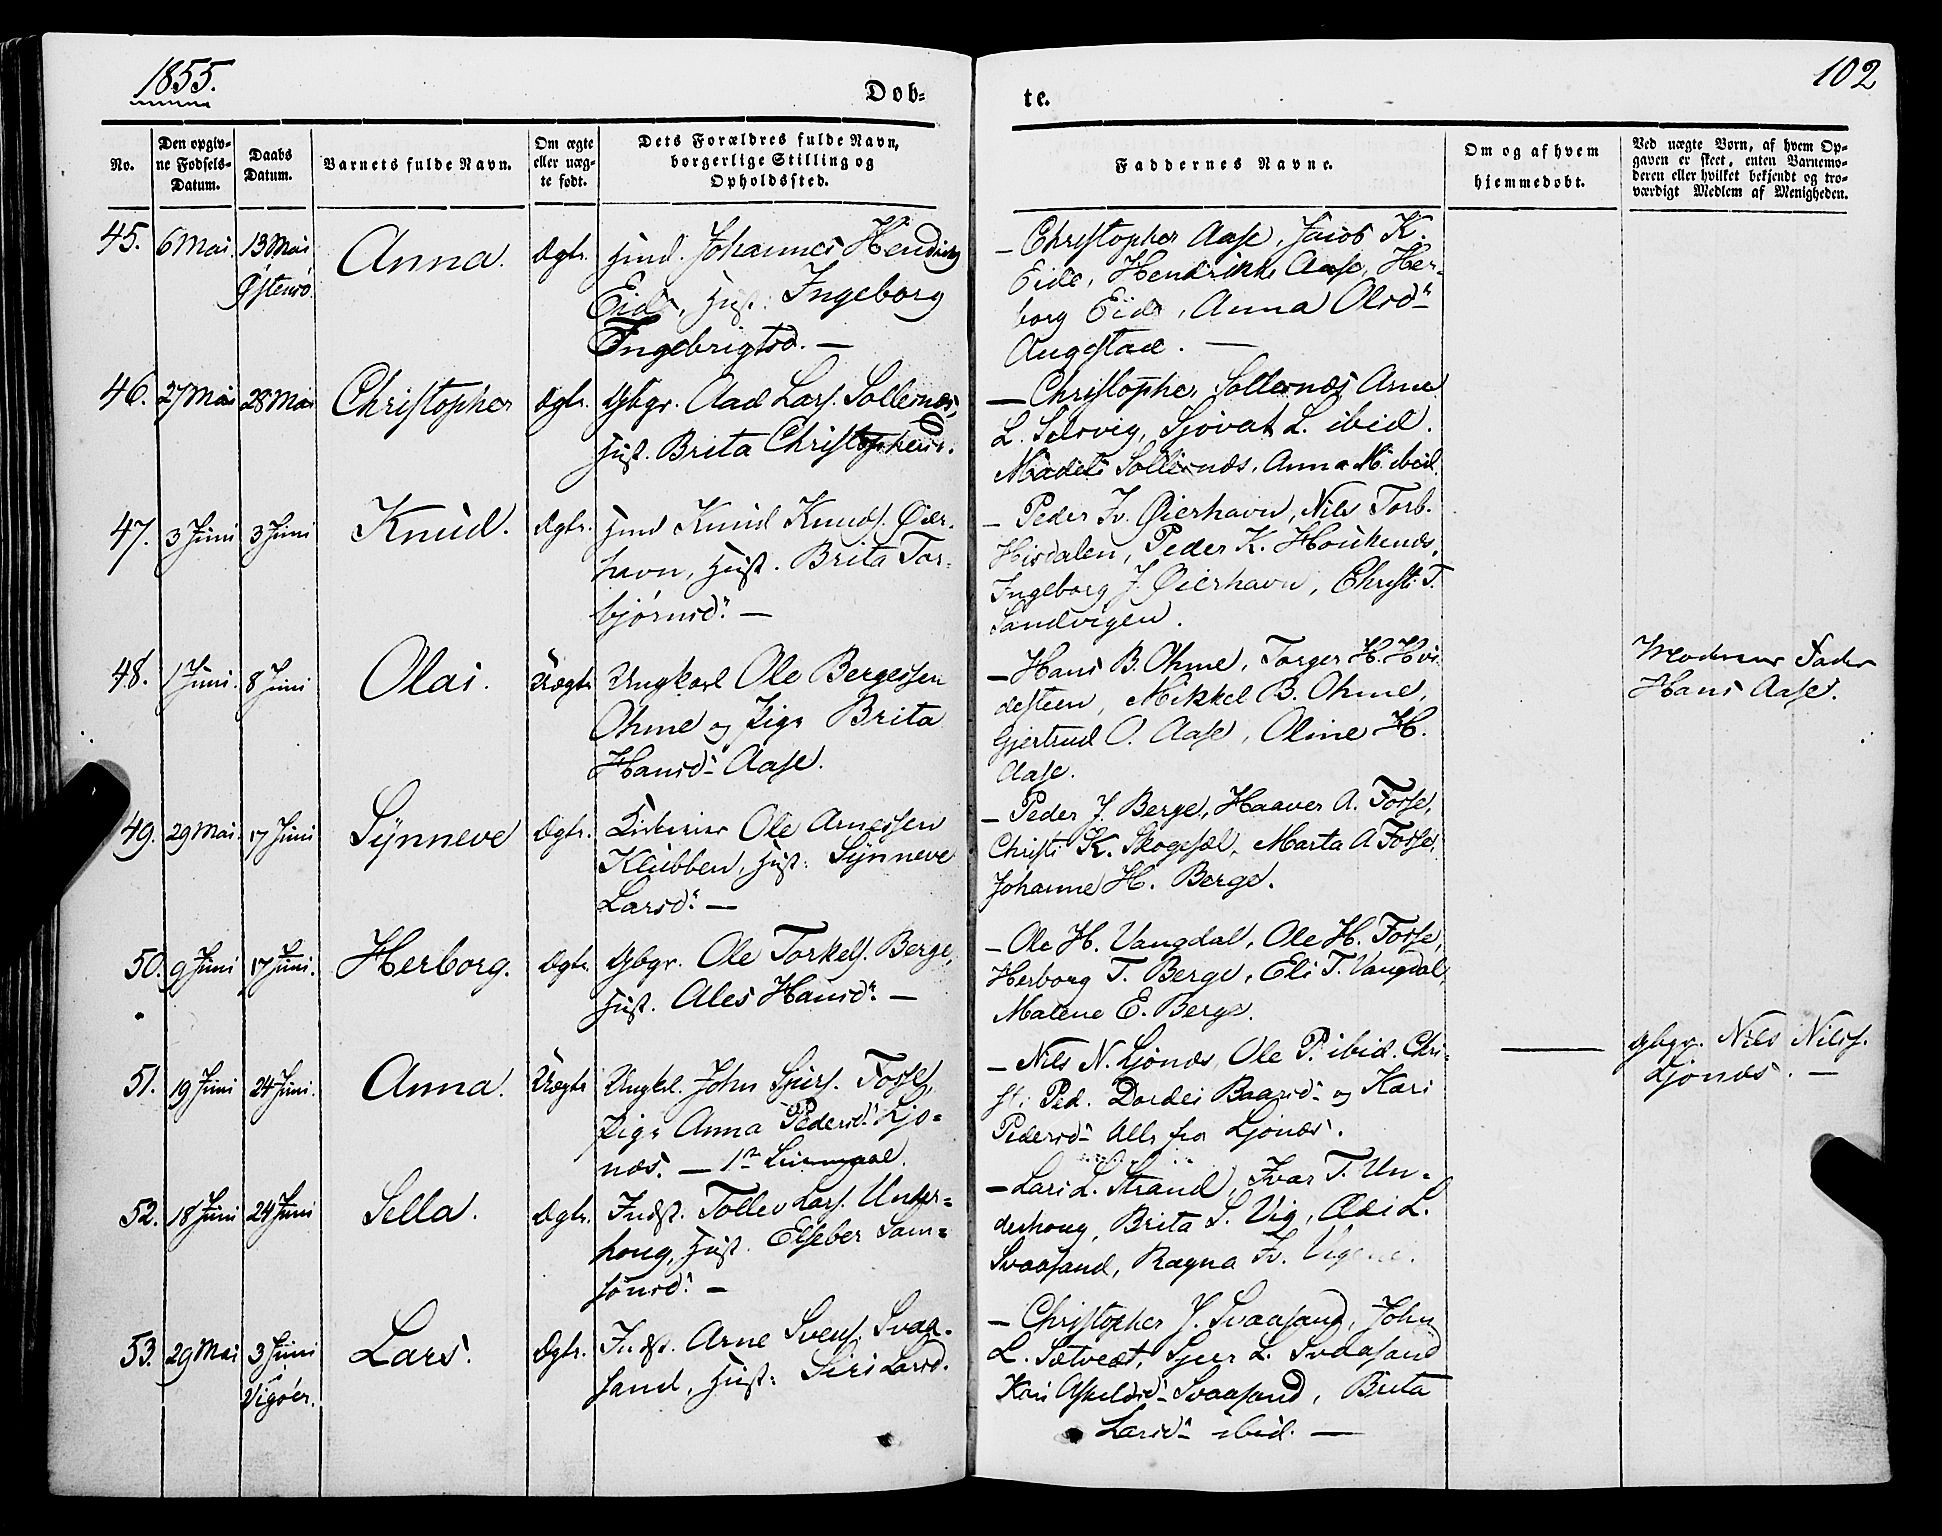 1855.
102
Dob-
te.
No.
Den opgiv-
ne Fødsels-
Datum.
Daabs
Datum.
Barnets fulde Navn.
Om ægte
eller uæg-
te født.
Dets Forældres fulde Navn,
borgerlige Stilling og
Opholdssted.
Faddernes Navne.
Om og af hvem
hjemmedøbt.
Ved uægte Børn, af hvem Op-
gaven er skeet, enten Barnemo-
deren eller hvilket bekjendt og tro-
værdigt Medlem af Menigheden.
45. 6 Mai. 13 Mai Anna. Ægte. Huusm. Johannes
Østensø.
Eide, Hust: Ingeborg
Ingebrigtsd. —
— Christopher Aase, Jacob K.
Eide, Hendrikke Aase, Her-
borg Eide, Anna Olsd:
Augestad. —
46. 27 Mai 28 Mai Christopher Ægte. Gbgr. Aad Lars. Sollesnæs,
Hust. Brita Christophersd.
— Christopher Sollesnæs Arne
L. Selsvig, Sjovat L. ibid.
Sollesnæs, Anna M. ibid
47. 3 Juni 3 Juni Knud. Ægte. Knud Knuds. Øier-
havn, Hust. Brita Tor-
bjørnsd: —
— Peder Iv. Øierhavn, Nils Torb.
Hisdalen, Peder K.
Ingeborg J. Øierhavn, Christi T.
Sandvigen.
48. 1 Juni. 8 Juni Olai. Uægte Ungkarl Ole Bergessen
Ohme og Pige Brita
Hansd: Aase.
— Hans B. Ohme, Torger H. Hvi-
desteen, Mikkel B. Ohme,
Gjertrud O. Aase, Oline H.
Aase.
Moderens Fader
Hans Aase.
49. 29 Mai. 17 Juni Synneve Ægte. Ole Arnessen
Klubben, Hust: Synneve
Larsd: —
— Peder J. Berge, Haaver A. Fosse,
Christi K. Skogesæl, Marta A Fosse,
Johanne H. Berge.
50. 9 Juni 17 Juni. Herborg. Ægte. Gbgr. Ole Torkels. Berge,
Hust. Ales Hansd: —
— Ole H. Vangdal, Ole H. Fosse,
Herborg T. Berge, Eli T. Vangdal,
Malene E. Berge.
51. 19 Juni 24 Juni. Anna. Uægte Ungkl. John Sjurs. Fosse,
Pige Anna Pedersd: Ljo-
næs. — 1ste Leiermaal.
— Nils N. Ljonæs, Ole P. ibid. Chri-
st: Ped. Dordei Baarsd: og Kari
Pedersd: Alle fra Ljonæs.
Gbgr. Nils Nilss.
Ljonæs. —
52. 18 Juni 24 Juni Sella. Ægte. Indst. Tollev Lars. Under-
houg, Hust. Elseber Sam-
sonsd: —
— Lars L. Strand, Ivar T. Un-
derhoug, Brita S. Vig, L.
Svaasand, Ragna Iv.
53. 29 Mai 3 Juni Lars. Ægte. Indst. Arne Svens. Svaa-
Vigøer.
sand, Hust: Siri Larsd.
— Christopher J. Svaasand, John
L. Sætvedt, Sjur L. Svaasand
Svaasand, Brita
Larsd: ibid. —